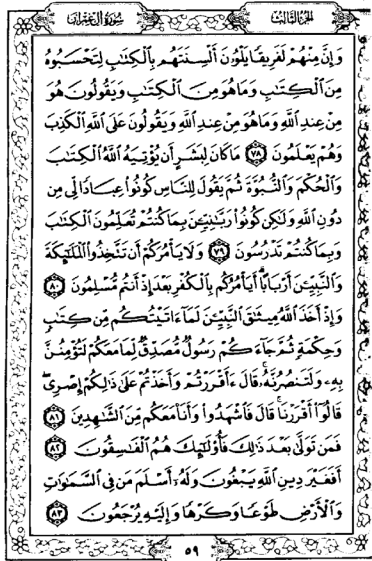 الجزء الثالث
سورة آل عمران
وَإِنَّ مِنْهُمْ لَفَرِيقًا يَلْوُۥنَ أَلْسِنَتَهُم بِٱلْكِتَٰبِ لِتَحْسَبُوهُ
مِنَ ٱلْكِتَٰبِ وَمَا هُوَ مِنَ ٱلْكِتَٰبِ وَيَقُولُونَ هُوَ
مِنْ عِندِ ٱللَّهِ وَمَا هُوَ مِنْ عِندِ ٱللَّهِ وَيَقُولُونَ عَلَى ٱللَّهِ ٱلْكَذِبَ
وَهُمْ يَعْلَمُونَ ٧٨ مَا كَانَ لِبَشَرٍ أَن يُؤْتِيَهُ ٱللَّهُ ٱلْكِتَٰبَ
وَٱلْحُكْمَ وَٱلنُّبُوَّةَ ثُمَّ يَقُولَ لِلنَّاسِ كُونُوا۟ عِبَادًا لِّى مِن
دُونِ ٱللَّهِ وَلَٰكِن كُونُوا۟ رَبَّٰنِيِّۦنَ بِمَا كُنتُمْ تُعَلِّمُونَ ٱلْكِتَٰبَ
وَبِمَا كُنتُمْ تَدْرُسُونَ ٧٩ وَلَا يَأْمُرَكُمْ أَن تَتَّخِذُوا۟ ٱلْمَلَٰٓئِكَةَ
وَٱلنَّبِيِّۦنَ أَرْبَابًا أَيَأْمُرُكُم بِٱلْكُفْرِ بَعْدَ إِذْ أَنتُم مُّسْلِمُونَ ٨٠
وَإِذْ أَخَذَ ٱللَّهُ مِيثَٰقَ ٱلنَّبِيِّۦنَ لَمَآ ءَاتَيْتُكُم مِّن كِتَٰبٍ
وَحِكْمَةٍ ثُمَّ جَآءَكُمْ رَسُولٌ مُّصَدِّقٌ لِّمَا مَعَكُمْ لَتُؤْمِنُنَّ
بِهِۦ وَلَتَنصُرُنَّهُۥ قَالَ ءَأَقْرَرْتُمْ وَأَخَذْتُمْ عَلَىٰ ذَٰلِكُمْ إِصْرِى
قَالُوٓا۟ أَقْرَرْنَا قَالَ فَٱشْهَدُوا۟ وَأَنَا۠ مَعَكُم مِّنَ ٱلشَّٰهِدِينَ ٨١
فَمَن تَوَلَّىٰ بَعْدَ ذَٰلِكَ فَأُو۟لَٰٓئِكَ هُمُ ٱلْفَٰسِقُونَ ٨٢
أَفَغَيْرَ دِينِ ٱللَّهِ يَبْغُونَ وَلَهُۥٓ أَسْلَمَ مَن فِى ٱلسَّمَٰوَٰتِ
وَٱلْأَرْضِ طَوْعًا وَكَرْهًا وَإِلَيْهِ يُرْجَعُونَ ٨٣
٥٩